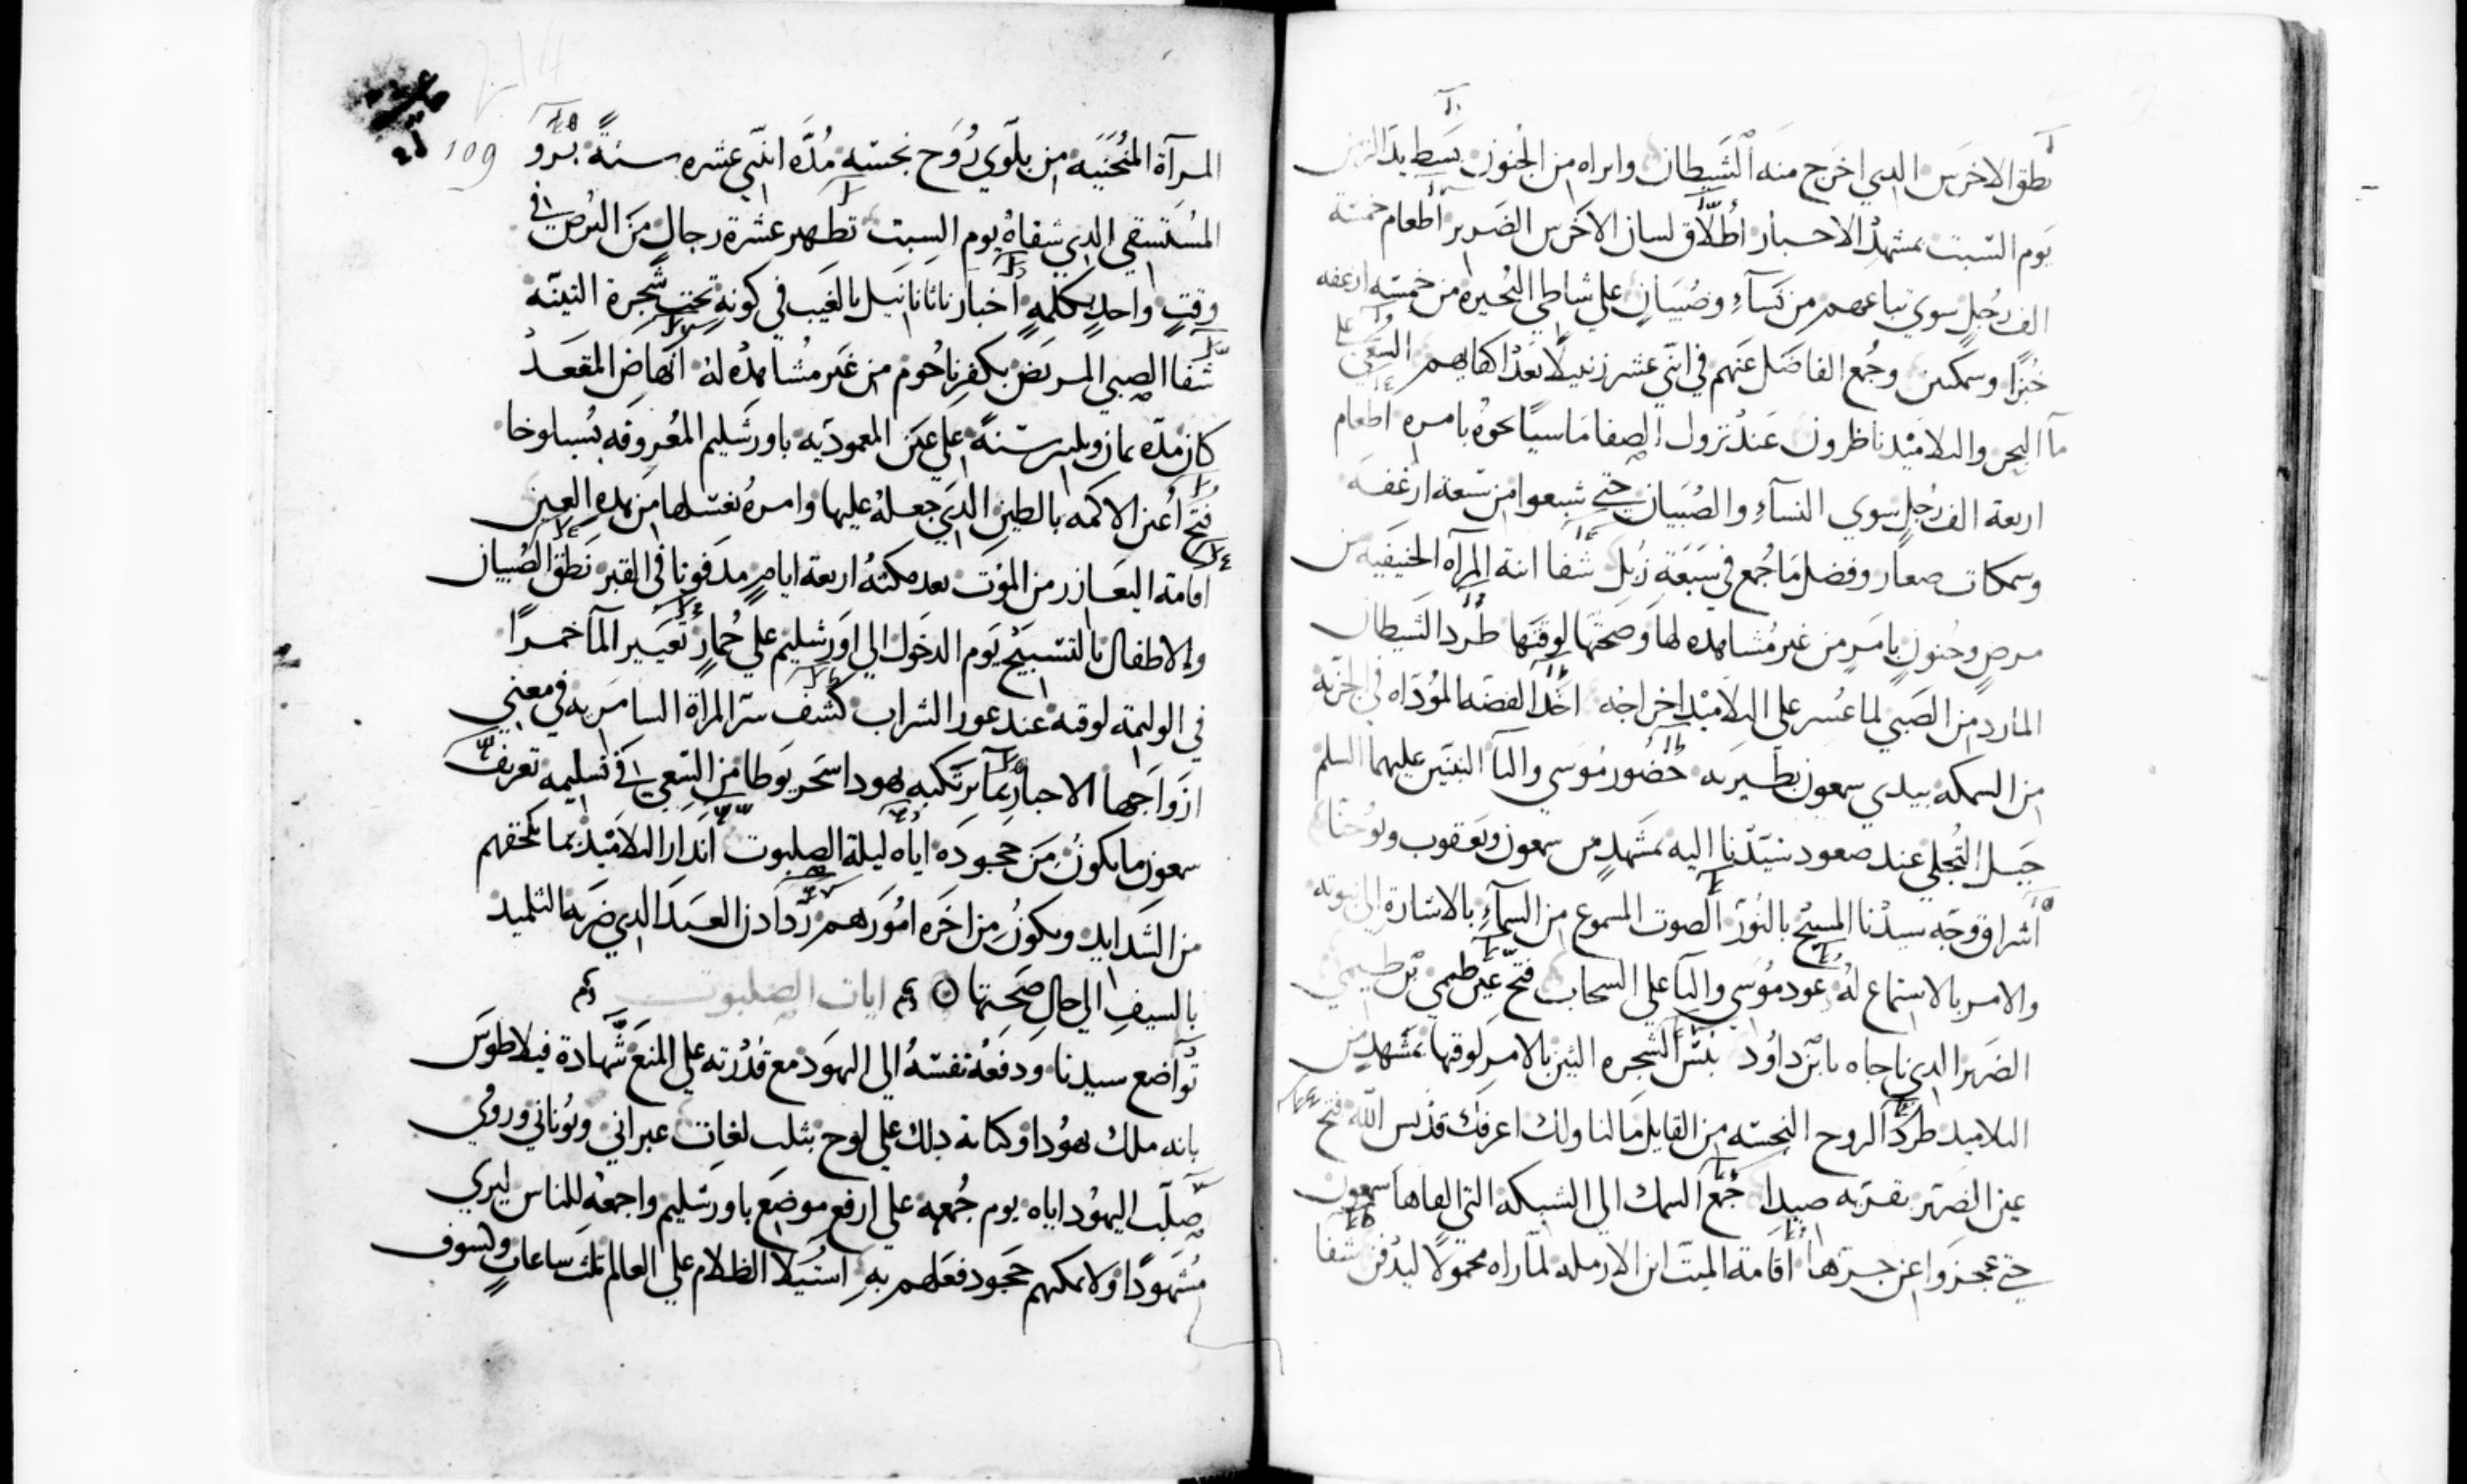 نطق الاخرس الدي اخرج منه الشيطان وابراه من الجنون بسط يد الزمن
يوم السبت بمشهد الاحبار اطلاق لسان الاخرس الضرير اطعام خمسة
الف رجل سوي تباعهم من نسآء وصبيان علي شاطي البحيره من خمسه ارغفه
خبزا وسمكتين وجمع الفاضل عنهم في اثني عشر زنبيلا بعد اكفايهم السعي علي
مآ البحر والتلاميد ناظرون عند نزول الصفا ماسيا نحوه بامره اطعام
اربعة الف رجل سوي النسآء والصبيان حتي شبعوا من سبعة ارغفه
وسمكات صغار وفضل ما جمع في سبعة زبل شفا ابنة المرآه الحنيفيه من
مرض وجنون بامر من غير مشاهده لها وصحتها لوقتها طرد الشيطان
المارد من الصبي لما عسر علي التلاميد اخراجه اخد الفضه الموداه في الجزيه
من السمكه بيدي سمعون بطبريه حضور موسي واليا النبيين عليهما السلم
جبل التجلي عند صعود سيدنا اليه بمشهد من سمعون ويعقوب ويوحنا
اشراق وجه سيدنا المسيح بالنور الصوت المسموع من السمآء بالاشارة الي بنوته
والامر بالاستماع له عود موسي واليا علي السحاب فتح عين طيمي بن طيمي
الضرير الدي ناجاه يابن داود يبس الشجره التين بالامر لوقتها بمشهد من
التلاميد طرد الروح النجسه من القايل مالنا ولك اعرفك قديس الله فتح
عين الضرير بقريه صيدا جمع السمك الي الشبكه التي القاها سمعون
حتي عجزوا عن جرها اقامة الميت ابن الارمله لما راه محمولا ليدفن شفا
109
المرآة المنحنيه من بلوي روح نجسه مدة اثني عشره سنة برو
المستسقي الدي شفاه يوم السبت تطهير عشرة رجال من البرص في
وقت واحد بكلمه اخبار ناثانانييل بالغيب في كونه تحت شجرة التينه
شفا الصبي المريض بكفرناحوم من غير مشاهده له انهاض المقعد
كان مده ثمان وثلثين سنة علي عين المعموديه باورشليم المعروفه بسيلوخا
فتح اعين الاكمه بالطين الدي جعله عليها وامره بغسلها من هده العين
اقامة اليعازر من الموت بعد مكثه اربعة ايام مدفونا في القبر نطق الصبيان
والاطفال بالتسبيح يوم الدخول الي اورشليم علي حمار تغيير المآ خمرا
في الوليمة لوقته عند عوز الشراب كشف سر المراة السامريه في معني
ازواجها الاخبار بما يرتكبه يهودا سخريوطا من السعي في تسليمه تعريف
سمعون ما يكون من جحوده اياه ليلة الصلبوت اندار التلاميد بما يلحقهم
من الشدايد ويكون من اخره امورهم رد ادن العبد الدي ضربه التلميد
بالسيف الي حال صحتها ايات الصلبوت
تواضع سيدنا ودفعه نفسه الي اليهود مع قدرته علي المنع شهادة فيلاطوس
بانه ملك يهودا وكتابة دلك علي لوح بثلث لغات عبراني ويوناني ورومي
صلب اليهود اياه يوم جمعه علي ارفع موضع باورشليم واجمعه للناس ليري
مشهودا ولا يمكنهم جحود فعلهم به استيلا الظلام علي العالم ثلث ساعات وكسوف